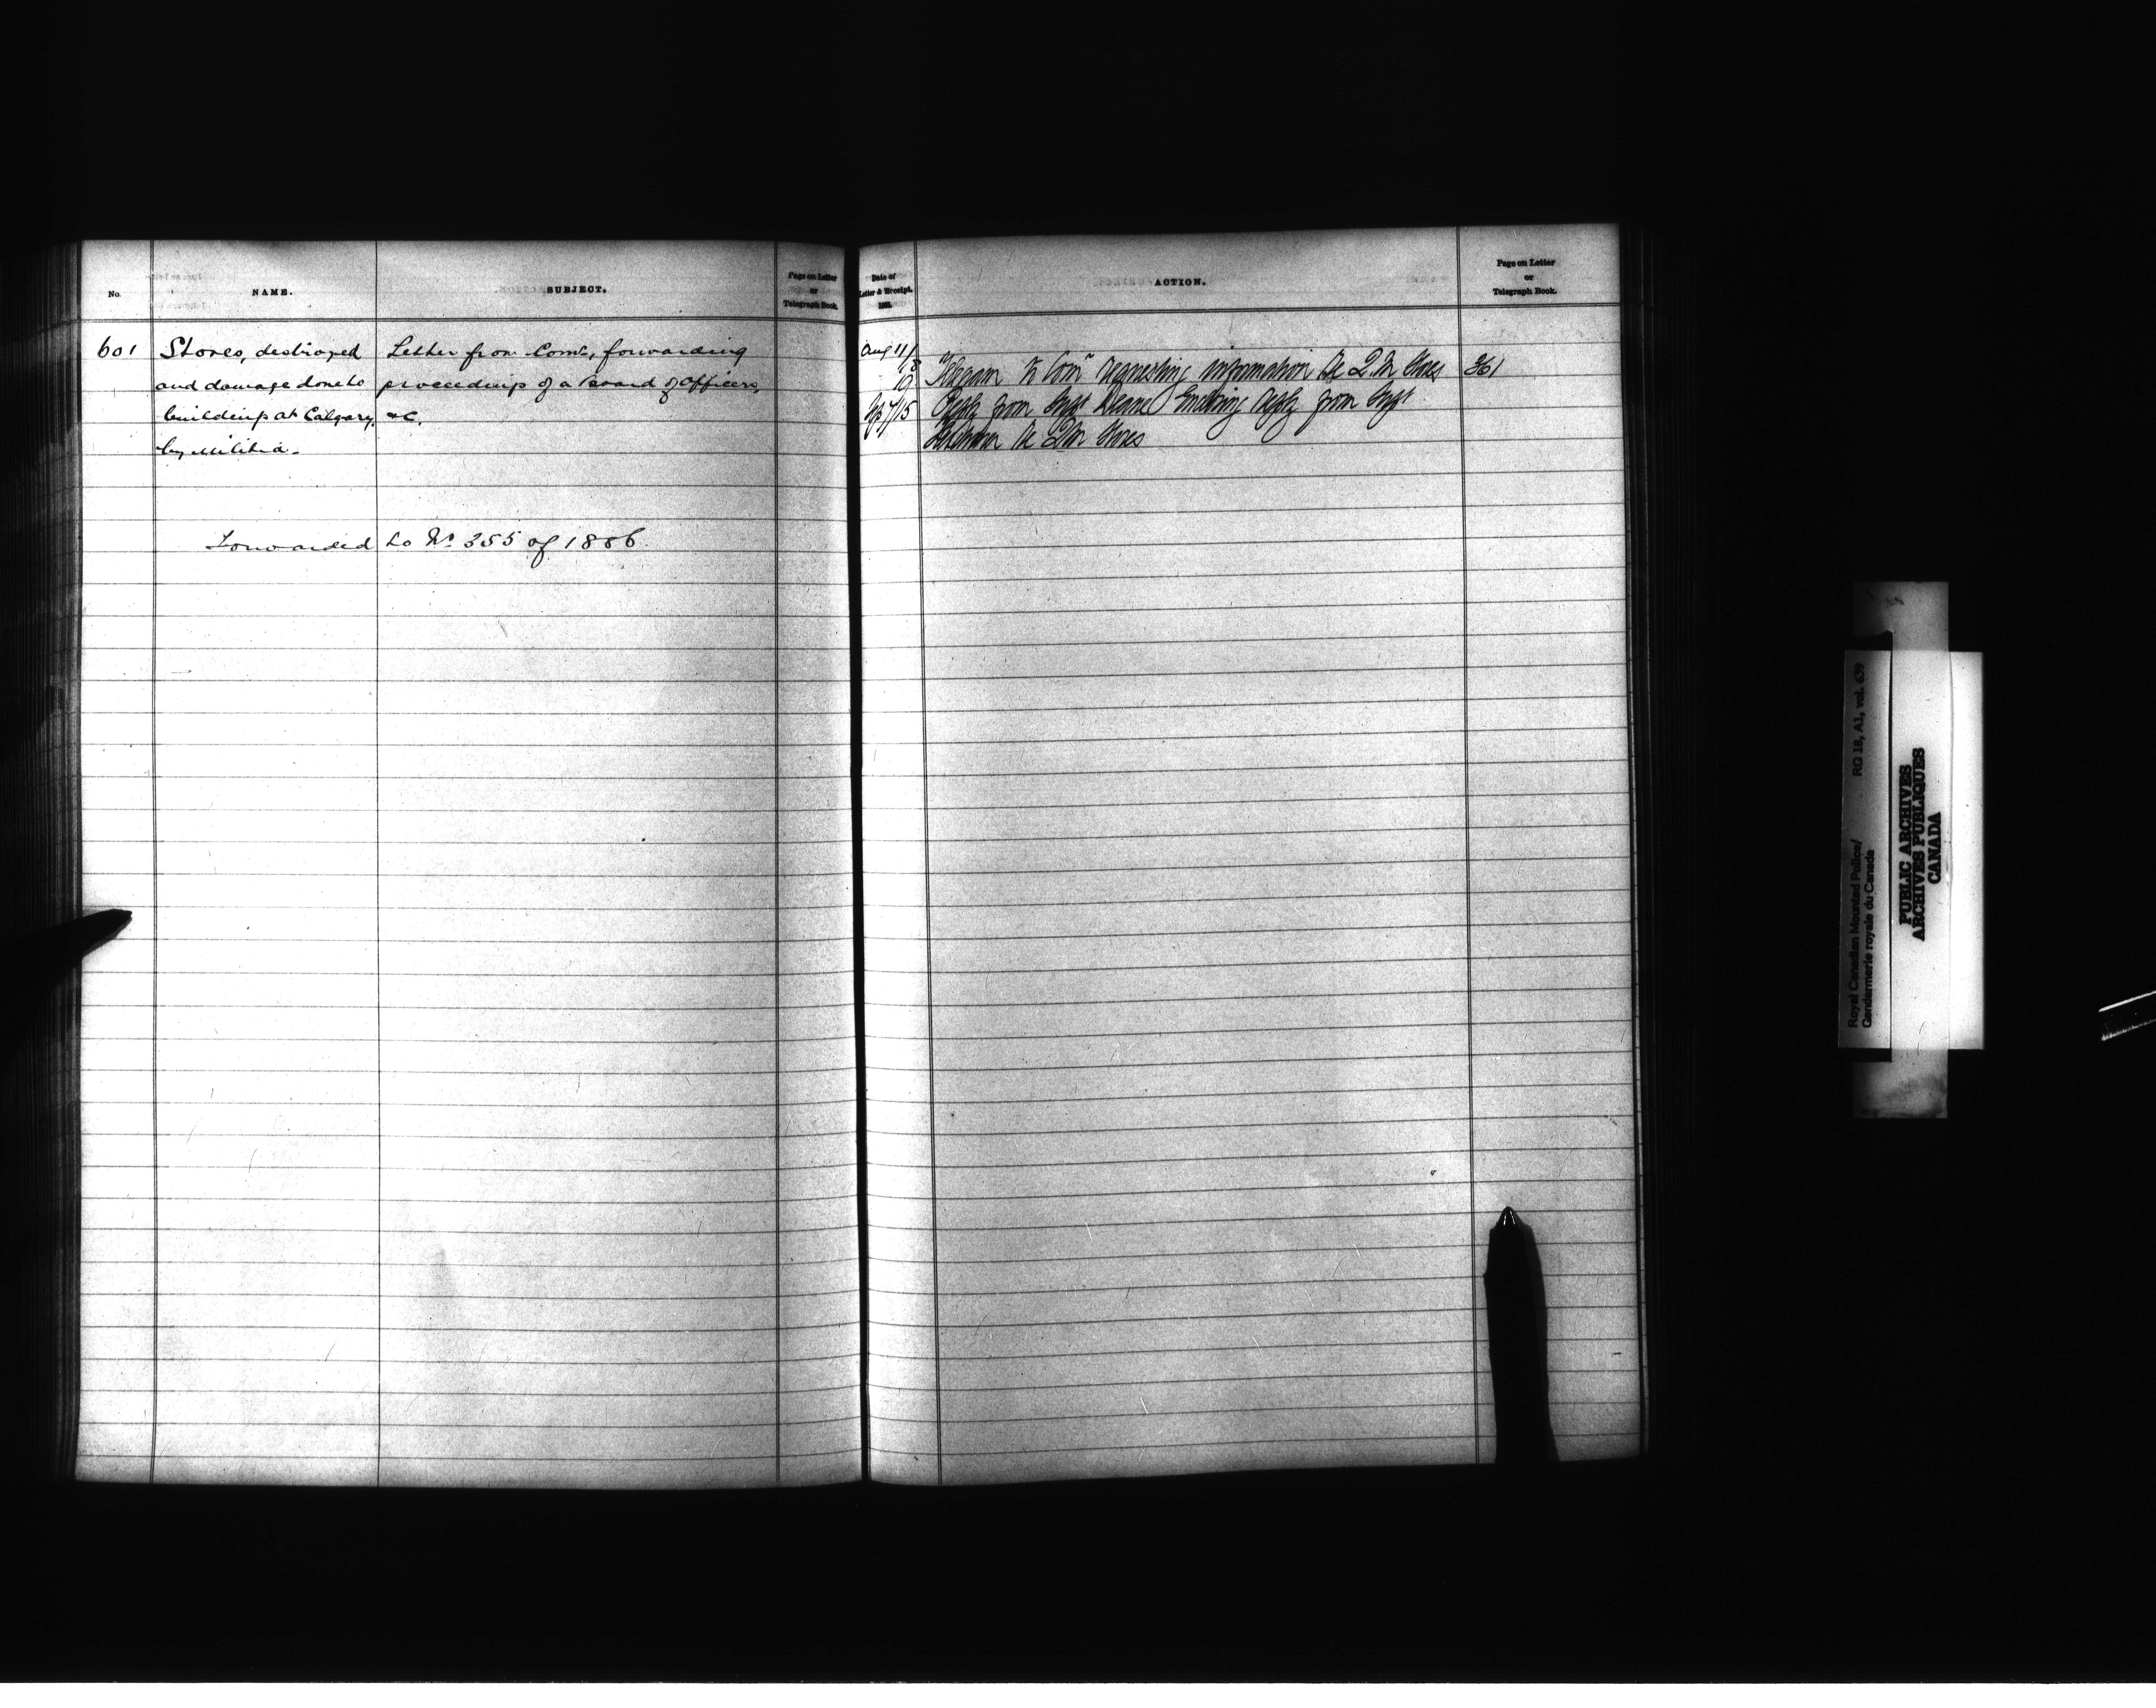 No.
NAME.
SUBJECT.
Page on Letter
or
Telegraph Book.
601
Stores, destroyed
and damage done to
buildings at Calgary,
by Militia.
Letter from Comr, forwarding
proceedings of a Board of Officers,
&c.
Forwarded to No 355 of 1886.
Date of
Letter & Receipt.
ACTION.
Page on Letter
or
Telegraph Book.
Aug 11/18
10 Telegram to Comr requesting information re Q.M. Stores 361
Sep 7/15 Reply from Supt Deane Enclosing reply from Supt
re QM Stores
RG 18, A1, vol. 639
Royal Canadian Mounted Police/
Gendarmerie royale du Canada
PUBLIC ARCHIVES
ARCHIVES PUBLIQUES
CANADA